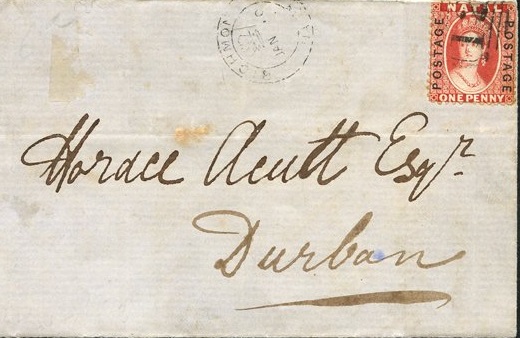 NATAL
POSTAGE
POSTAGE
ONE PENNY
JAN
Horace Acutt Esqr.
Durban